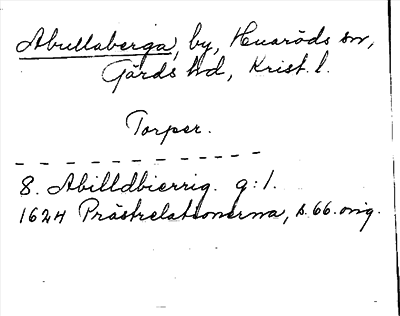 Abullaberga, by, Huaröds sn,
Gärds hd, Krist. l.
Torper.
8. Abilldbierrig. g:l.
1624 Prästrelationerna, s.66. orig.